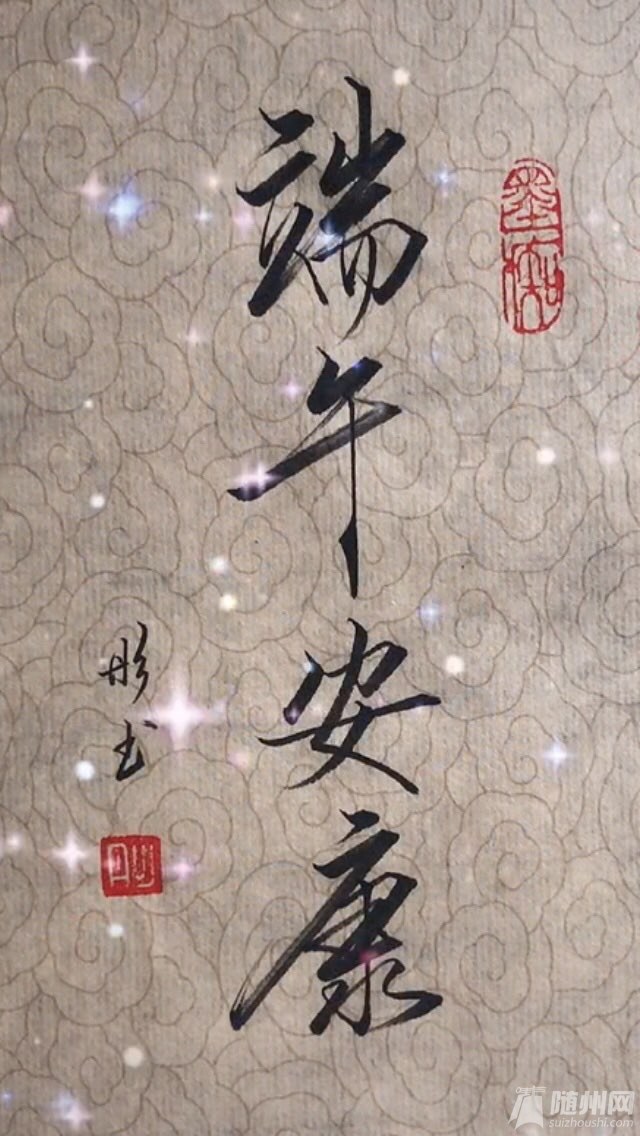 端午安康
彤书
随州网
suizhoushi.com